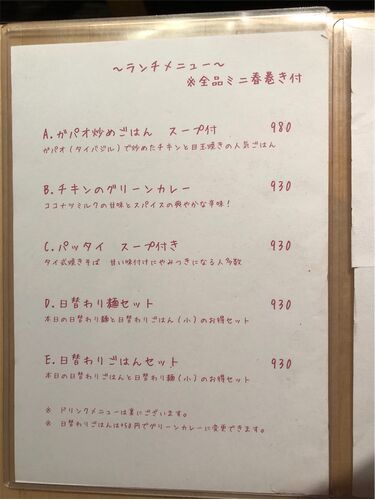 ～ランチメニュー～
※全品ミニ春巻き付
A.ガパオ炒めごはん スープ付 980
ガパオ(タイバジル)で炒めたチキンと目玉焼きの人気ごはん
B.チキンのグリーンカレー 930
ココナツミルクの甘味とスパイスの爽やかな辛味!
C.パッタイ スープ付き 930
タイ式焼きそば 甘い味付けにやみつきになる人多数
D.日替わり麺セット 930
本日の日替わり麺と日替わりごはん(小)のお得セット
E.日替わりごはんセット 930
本日の日替わりごはんと日替わり麺(小)のお得セット
※ ドリンクメニューは裏にございます。
※ 日替わりごはんは+50円でグリーンカレーに変更できます。